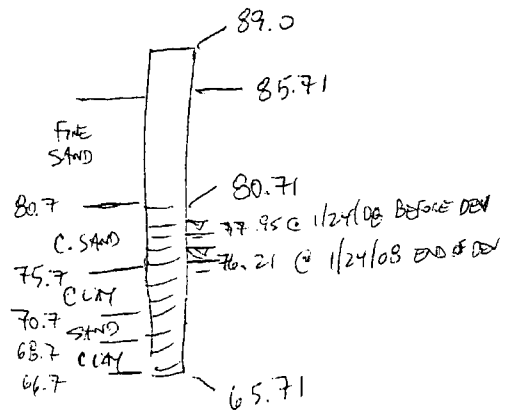 89.0
85.71
FINE
SAND
80.7
80.71
77.95 @ 1/24/08 BEFORE DEV
C. SAND
76.21 @ 1/24/08 END OF DEV
75.7
CLAY
70.7
SAND
68.7
CLAY
66.7
65.71